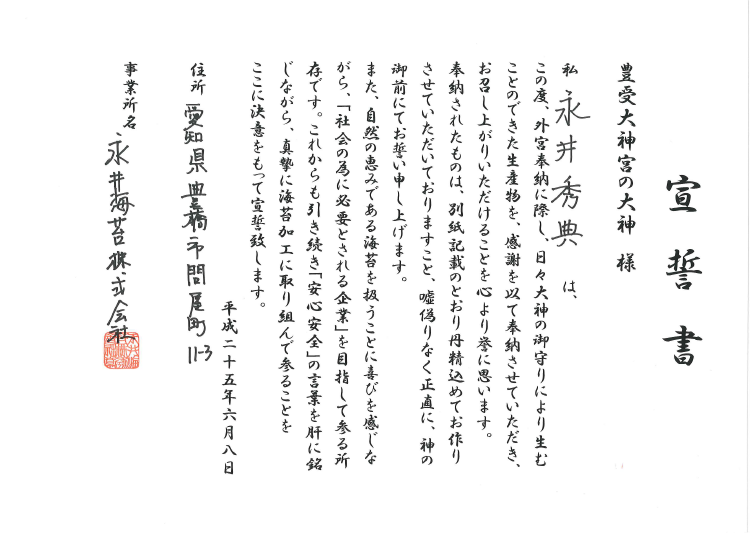 宣誓書
豊受大神宮の大神　様
私　永井秀典　は、
この度、外宮奉納に際し、日々大神の御守りにより生む
ことのできた生産物を、感謝を以て奉納させていただき、
お召し上がりいただけることを心より誉に思います。
奉納されたものは、別紙記載のとおり丹精込めてお作り
させていただいておりますこと、嘘偽りなく正直に、神の
御前にてお誓い申し上げます。
また、自然の恵みである海苔を扱うことに喜びを感じな
がら、「社会の為に必要とされる企業」を目指して参る所
存です。これからも引き続き「安心安全」の言葉を肝に銘
じながら、真摯に海苔加工に取り組んで参ることを
ここに決意をもって宣誓致します。
平成二十五年六月八日
住所　愛知県豊橋市問屋町11-3
事業所名　永井海苔株式会社